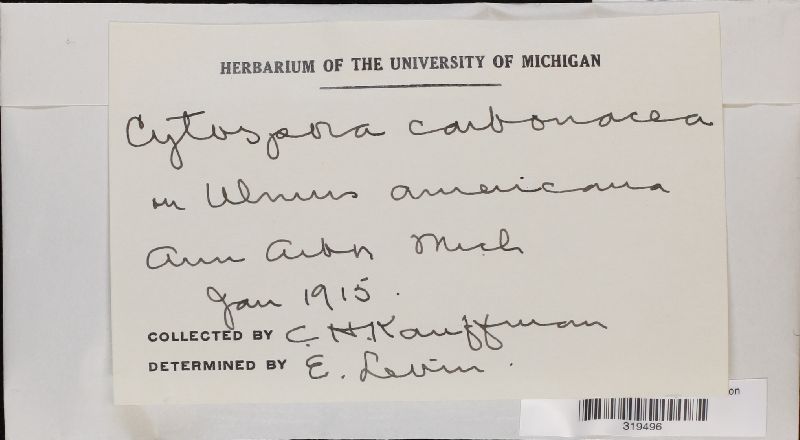 HERBARIUM OF THE UNIVERSITY OF MICHIGAN
Cytospora carbonacea
on Ulmus americana
Ann Arbor Mich
Jan 1915.
COLLECTED BY C. H. Kauffman
DETERMINED BY E. Levin.
on
319496